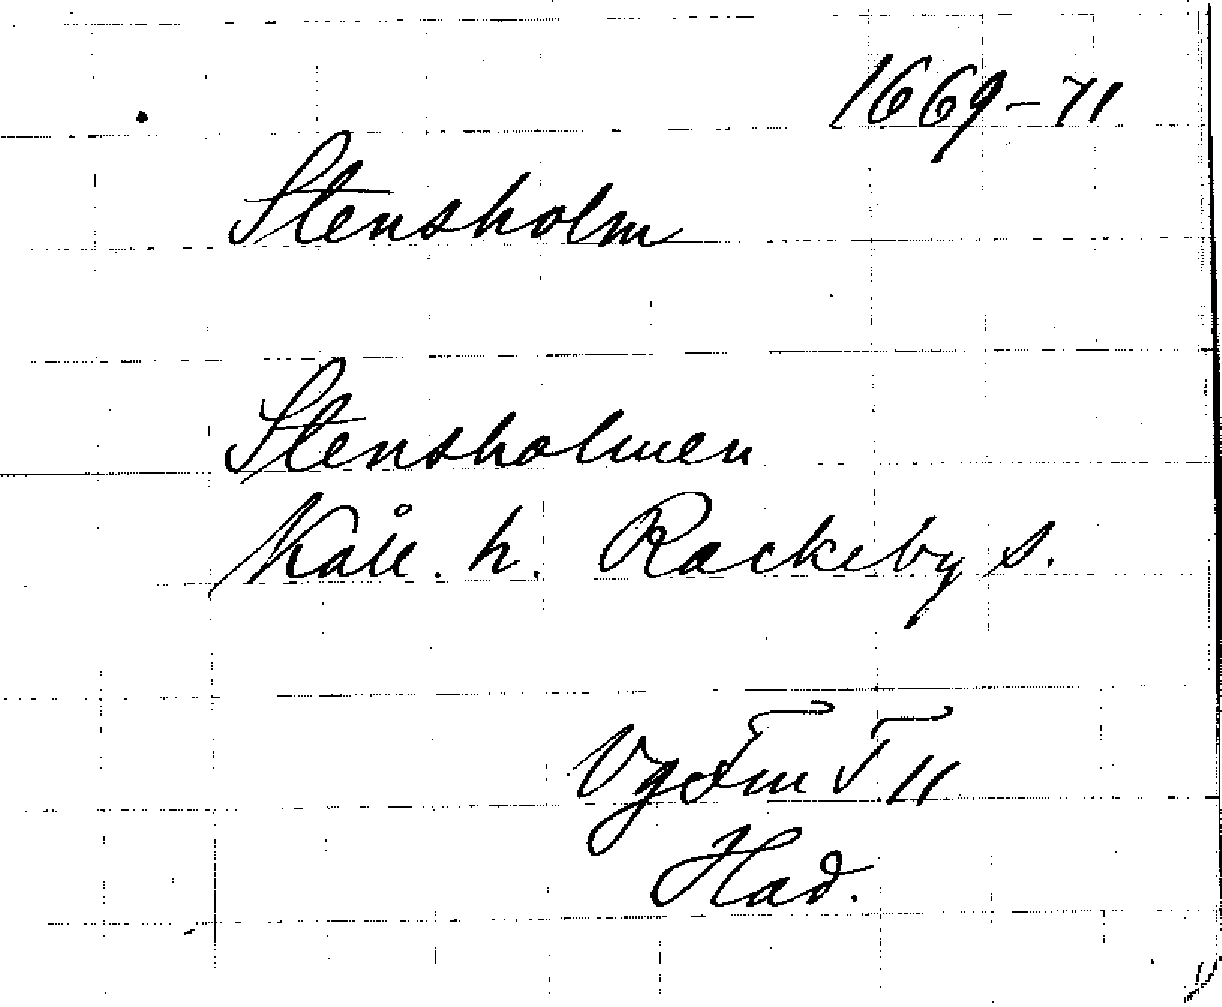 1669-71
Stensholm
Stensholmen
Kåll. h. Rackeby s.
VgFmT 11
Had.